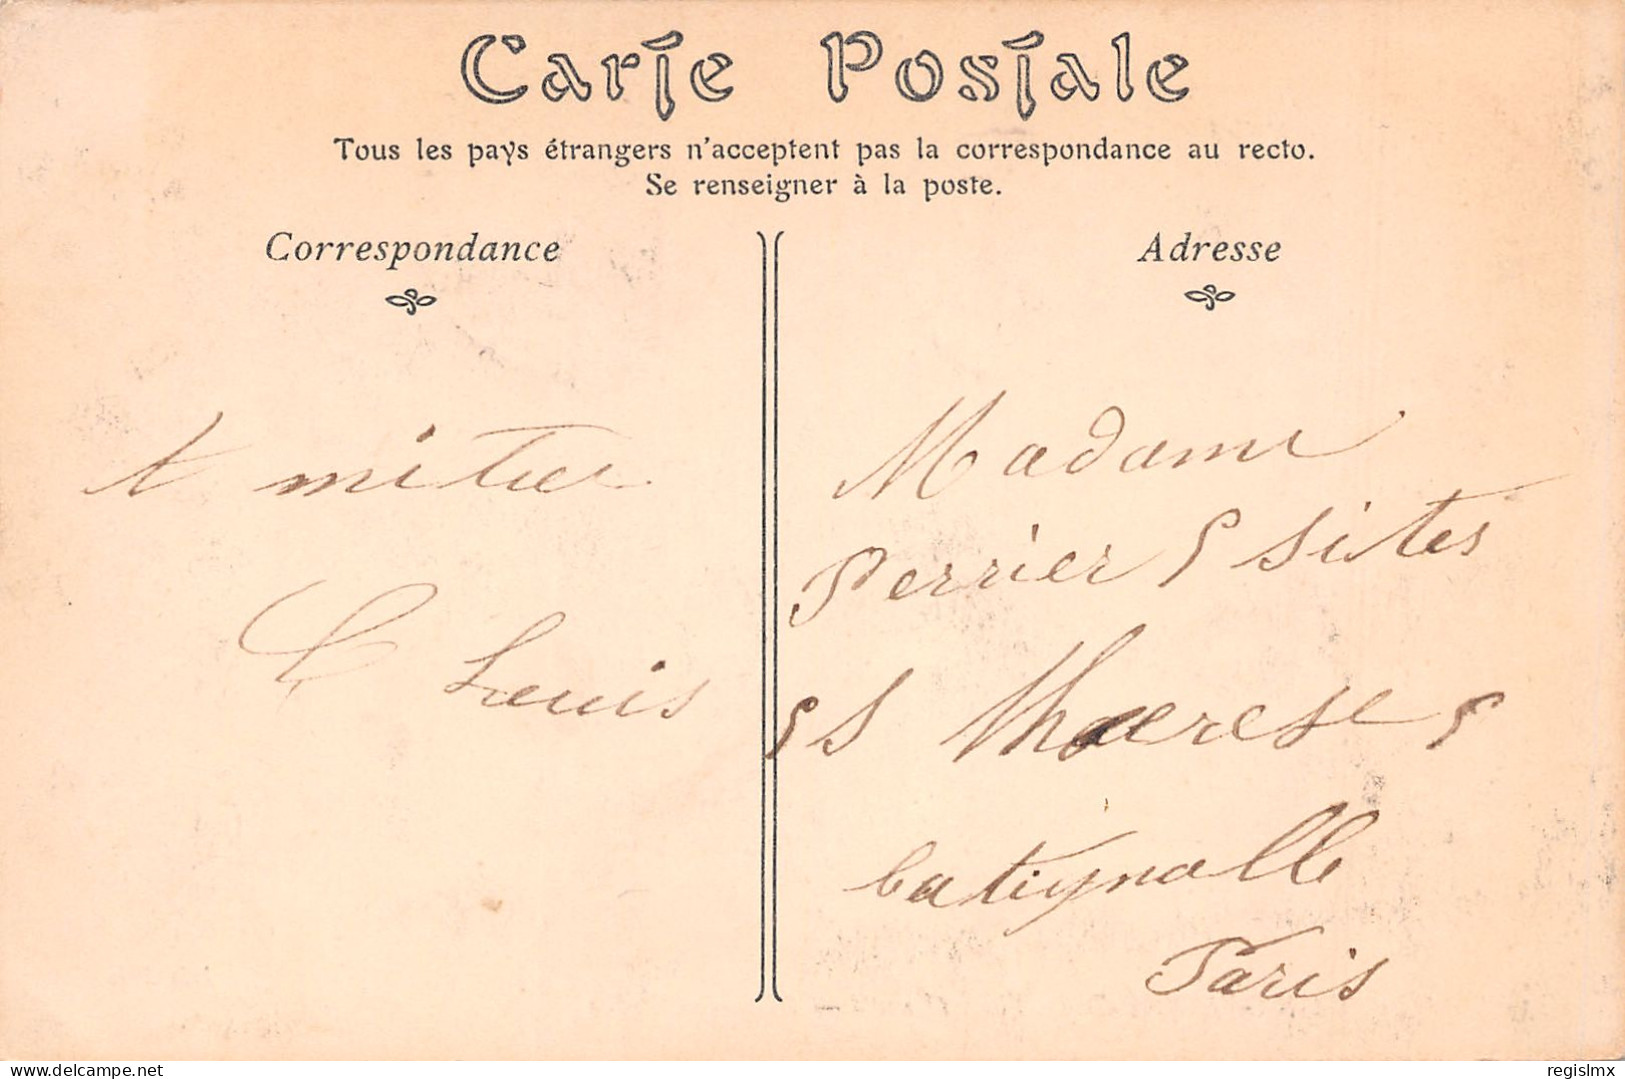 Carte Postale
Tous les pays étrangers n'acceptent pas la correspondance au recto.
Se renseigner à la poste.
Correspondance
Adresse
A mitier
Louis
Madame
Perrier 5 sites
5 S Therese 5
batignolle
Paris
delcampe.net
regislmx